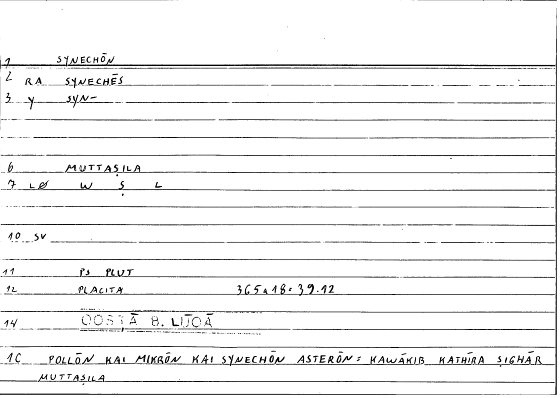 1 SYNECHŌN
2 RA SYNECHĒS
3 Y SYN-
6 MUTTAṢILA
7 LØ W Ṣ L
10 SV
11 PS PLUT
12 PLACITA 365a18 = 39.12
14 QOSṬĀ B. LŪQĀ
16 POLLŌN KAI MIKRŌN KAI SYNECHŌN ASTERŌN = KAWĀKIB KATHĪRA ṢIGHĀR
MUTTAṢILA